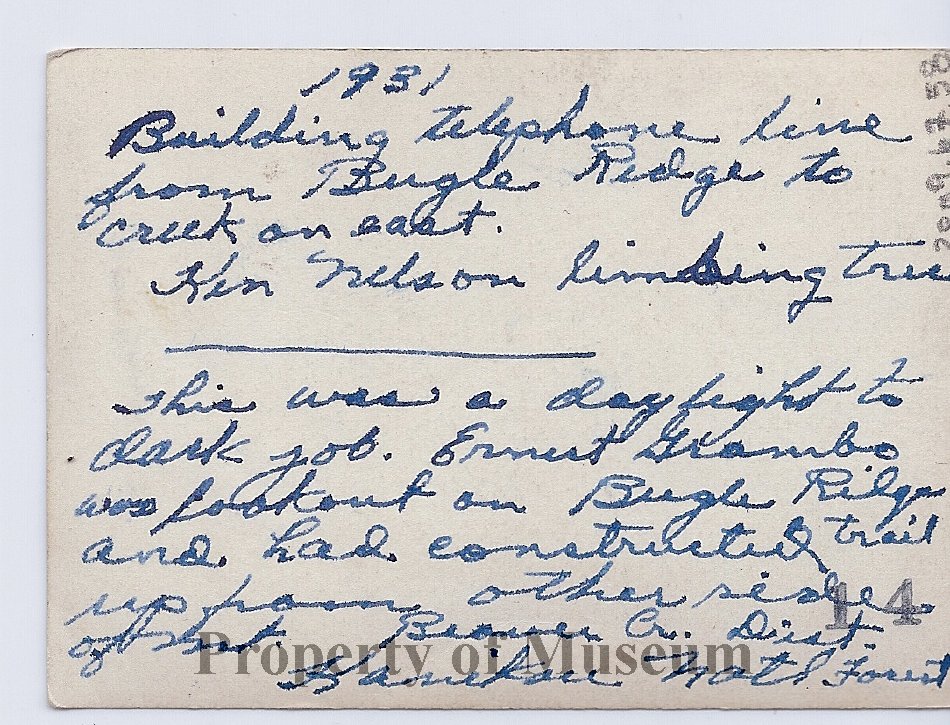 1931
Building telephone line
from Bugle Ridge to
creek on east.
Ken Nelson limbing tree
This was a daylight to
dark job. Ernest Grambo
was lookout on Bugle Ridge
and had constructed trail
up from other side
of mt. Beaver Cr. Dist.
Kaniksu Natl Forest
14
Property of Museum